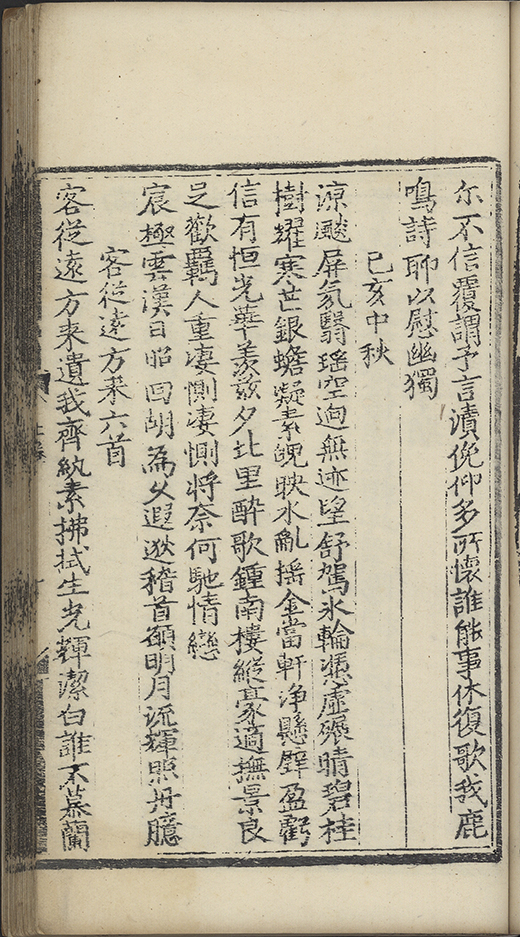 尓不信覆謂予言瀆俛仰多所懷誰能事休復歌我鹿
鳴詩聊以慰幽獨
己亥中秋
涼飈屏氛翳瑶空迥無迹望舒駕氷輪慿虛礙晴碧桂
樹耀寒芒銀蟾凝素魄映水亂揺金當軒浄懸璧盈虧
信有恒光華羙兹夕北里醉歌鍾南樓縱豪適撫景良
足歡羈人重凄惻凄惻將奈何馳情戀
宸極雲漢日昭回胡為久遐逖稽首顧明月流輝照丹臆
客從遠方来六首
客從遠方来遺我齊紈素拂拭生光輝潔白誰不慕蘭